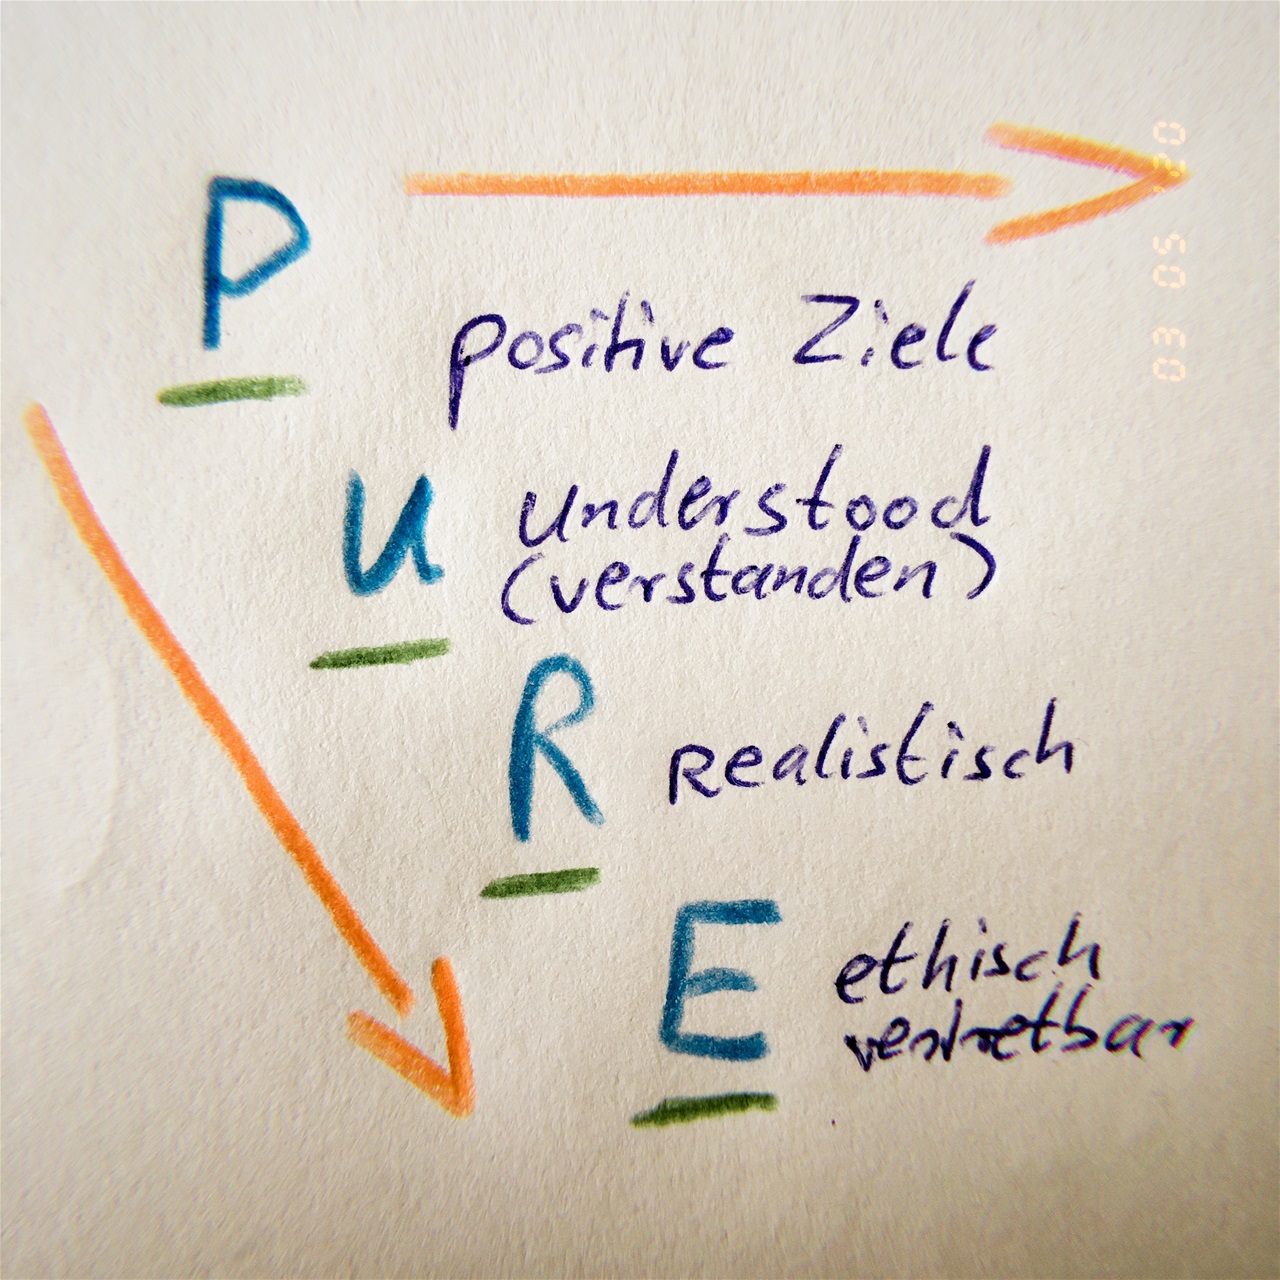 P
positive Ziele
U understood
(verstanden)
R realistisch
E ethisch
vertretbar
03 05 '20